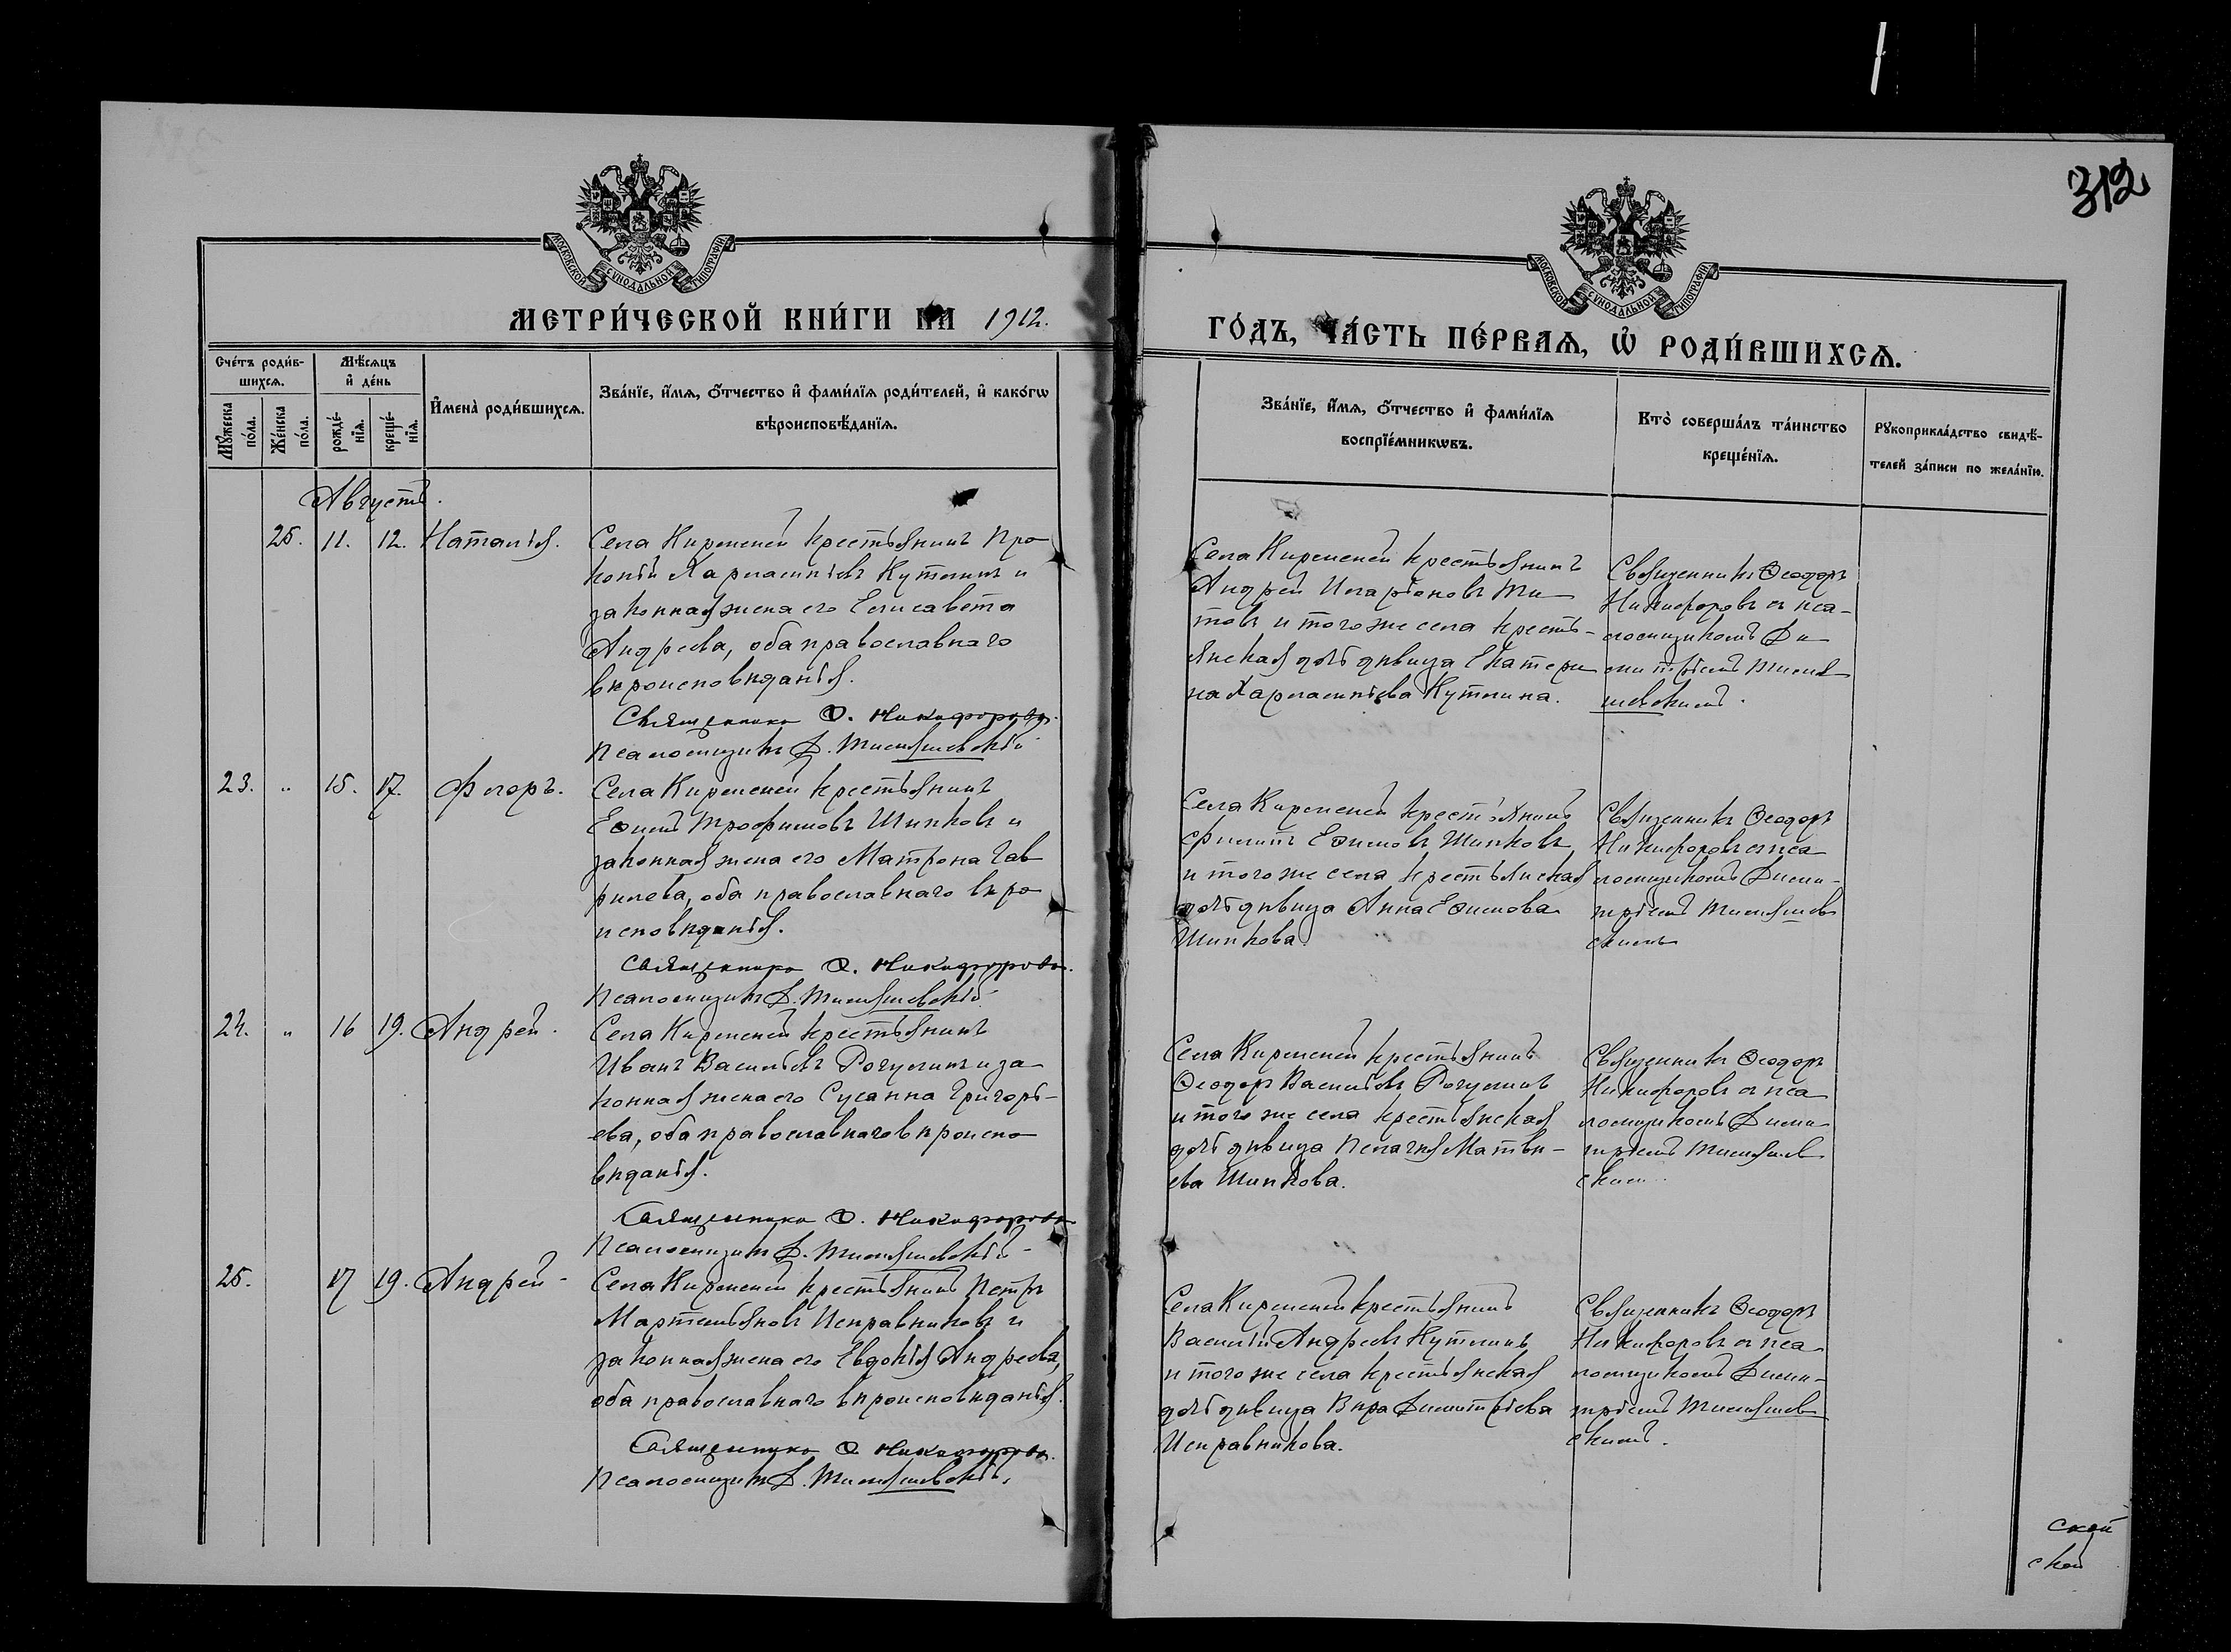 312
МОСКОВСКОЙ СѴНОДАЛЬНОЙ ТИПОГРАФІИ
МОСКОВСКОЙ СѴНОДАЛЬНОЙ ТИПОГРАФІИ
МЕТРИ́ЧЕСКОЙ КНИ́ГИ НА 1912.
ГО́ДЪ, ЧА́СТЬ ПЕ́РВАѦ, Ѡ҆ РОДИ́ВШИХСѦ.
Сче́тъ роди́в-
шихсѧ.
Мꙋ́жеска
по́ла.
Же́нска
по́ла.
Мѣ́сѧцъ
и҆ де́нь
рожде́-
нїѧ.
креще́-
нїѧ.
И҆мена̀ роди́вшихсѧ.
Зва́нїе, и҆́мѧ, ѻ҆́тчество и҆ фами́лїѧ роди́телей, и҆ како́гѡ
вѣроисповѣ́данїѧ.
Зва́нїе, и҆́мѧ, ѻ҆́тчество и҆ фами́лїѧ
воспрїе́мникѡвъ.
Кто̀ соверша́лъ та́инство
креще́нїѧ.
Рꙋкоприкла́дство свидѣ́-
телей за́писи по жела́нїю.
Августъ.
25. 11. 12. Наталія.
Села Кирменей крестьянинъ Про
копій Харлампіевъ Кутлинъ и
законная жена его Елисавета
Андреева, оба православнаго
вѣроисповѣданія.
Священникъ Ѳ. Никифоровъ.
Псаломщикъ Д.
Села Кирменей крестьянинъ
Андрей Иларіоновъ Ти-
товъ и того же села кресть-
янская дочь дѣвица Екатери
на Харлампіева Кутлина.
Священникъ Ѳеодоръ
Никифоровъ съ пса-
ломщикомъ Ди-
митріемъ
23. " 15. 17. Флоръ.
Села Кирменей крестьянинъ
Еѳимъ Трофимовъ Шипковъ и
законная жена его Матрона Гав
рилова, оба православнаго вѣро
исповѣданія.
Священникъ Ѳ. Никифоровъ.
Псаломщикъ Д.
Села Кирменей крестьянинъ
Филиппъ Еѳимовъ Шипковъ
и того же села крестьянская
дочь дѣвица Анна Еѳимова
Шипкова.
Священникъ Ѳеодоръ
Никифоровъ съ пса
ломщикомъ Дими-
тріемъ
скимъ
24. " 16 19. Андрей.
Села Кирменей крестьянинъ
Иванъ Васильевъ и за
конная жена его Сусанна Григорь-
ева, оба православнаго вѣроиспо
вѣданія.
Священникъ Ѳ. Никифоровъ
Псаломщикъ Д.
Села Кирменей крестьянинъ
Ѳеодоръ Васильевъ
и того же села крестьянская
дочь дѣвица Пелагія Матвѣ-
ева Шипкова.
Священникъ Ѳеодоръ
Никифоровъ съ пса
ломщикомъ Дими
тріемъ
скимъ
25. 17 19. Андрей
Села Кирменей крестьянинъ Петръ
Мартемьяновъ Исправниковъ и
законная жена его Евдокія Андреева,
оба православнаго вѣроисповѣданія.
Священникъ Ѳ. Никифоровъ.
Псаломщикъ Д.
Села Кирменей крестьянинъ
Василій Андреевъ Кутлинъ
и того же села крестьянская
дочь дѣвица Вѣра Димитріева
Исправникова.
Священникъ Ѳеодоръ
Никифоровъ съ пса
ломщикомъ Дими-
тріемъ
скимъ.
ской
ской